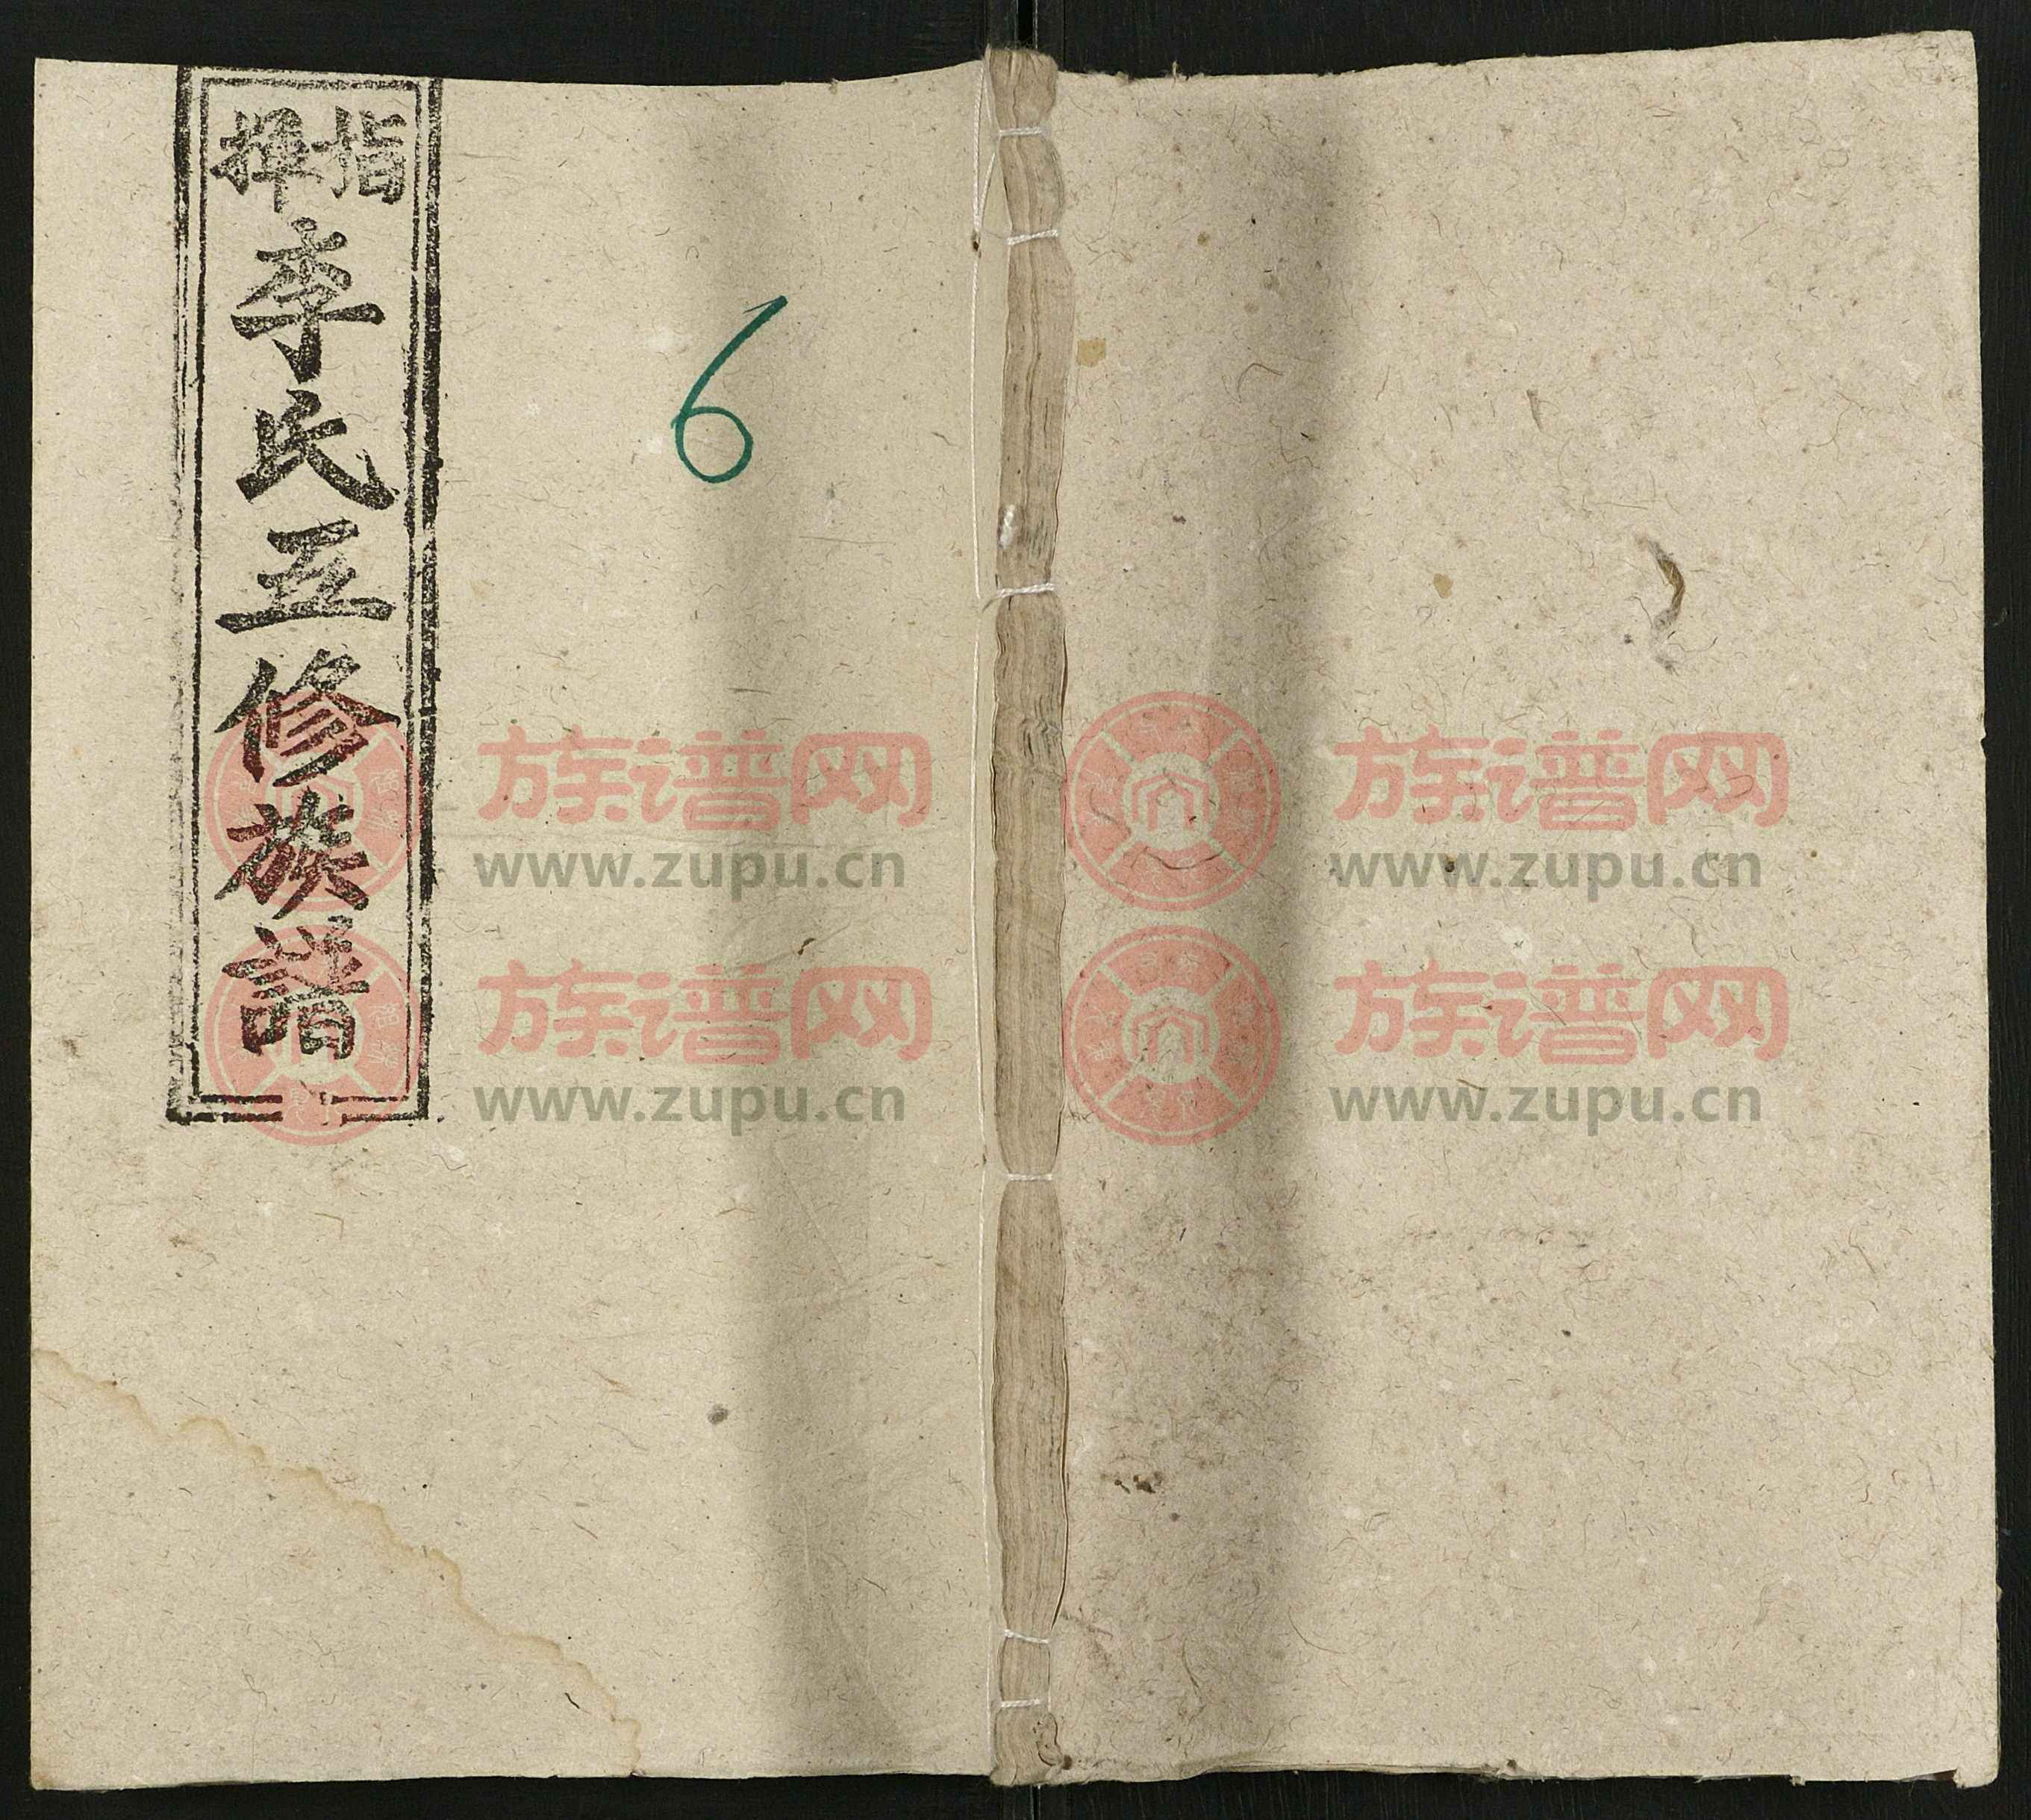 指揮
李氏五修族譜
6
族谱网
www.zupu.cn
族谱网
www.zupu.cn
族谱网
www.zupu.cn
族谱网
www.zupu.cn